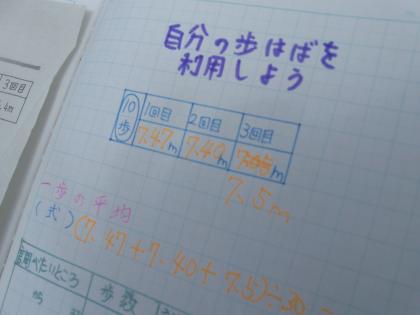 3回目
.4m
自分の歩はばを
利用しよう
10歩 1回目 2回目 3回目
7.47m 7.40m m
7.5m
一歩の平均
(式)(7.47+7.40+7.5)÷30
べたいところ 歩数